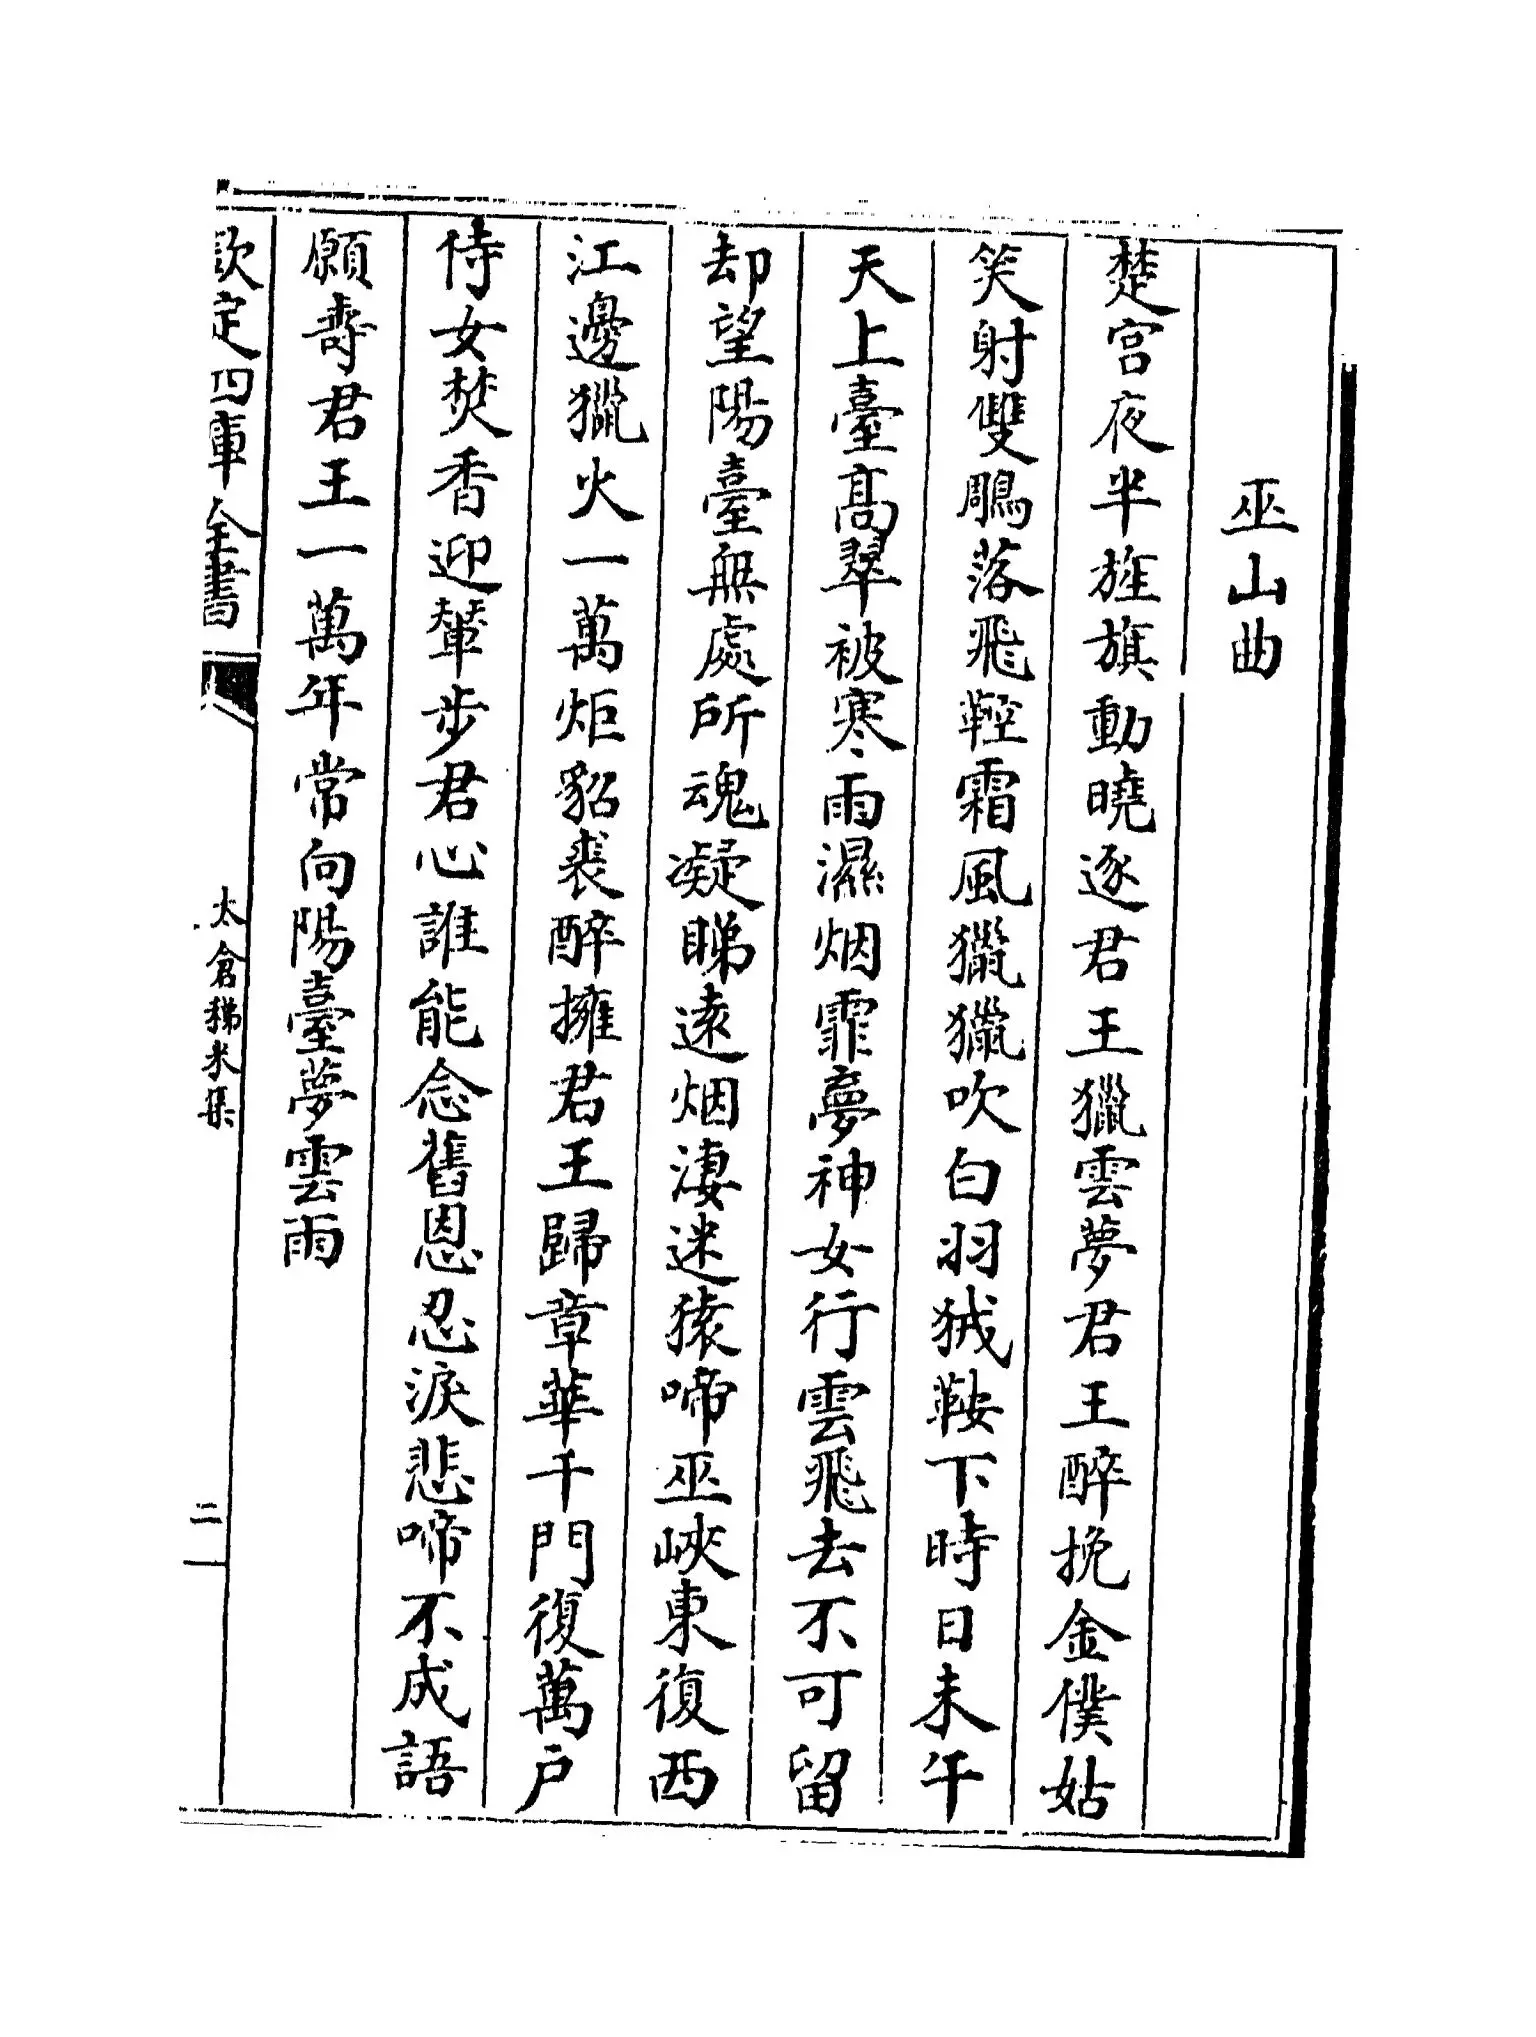 巫山曲
楚宫夜半旌旗動曉逐君王獵雲夢君王醉挽金僕姑
笑射雙鵰落飛鞚霜風獵獵吹白羽狨鞍下時日未午
天上臺髙翠被寒雨濕烟霏夢神女行雲飛去不可留
却望陽臺無處所魂凝睇逺烟淒迷猿啼巫峽東復西
江邊獵火一萬炬貂裘醉擁君王歸章華千門復萬户
侍女焚香迎輦步君心誰能念舊恩忍淚悲啼不成語
願壽君王一萬年常向陽臺夢雲雨
欽定四庫全書
太倉稊米集
二